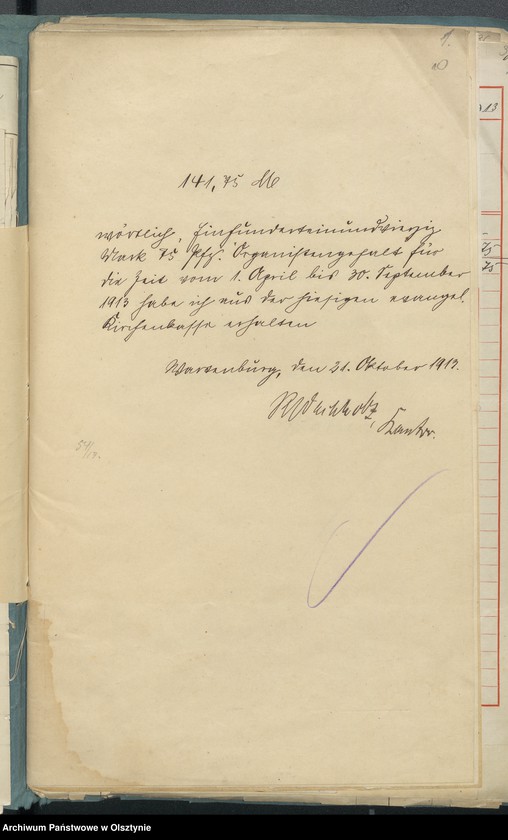 141,75 M
wörtlich "Einhunderteinundvierzig
Mark 75 Pfg." Organistengehalt für
die Zeit vom 1. April bis 30. September
1913 habe ich aus der hiesigen evangel.
Kirchenkasse erhalten
Wartenburg, den 21. Oktober 1913.
Kantor.
13
75
75
Archiwum Państwowe w Olsztynie